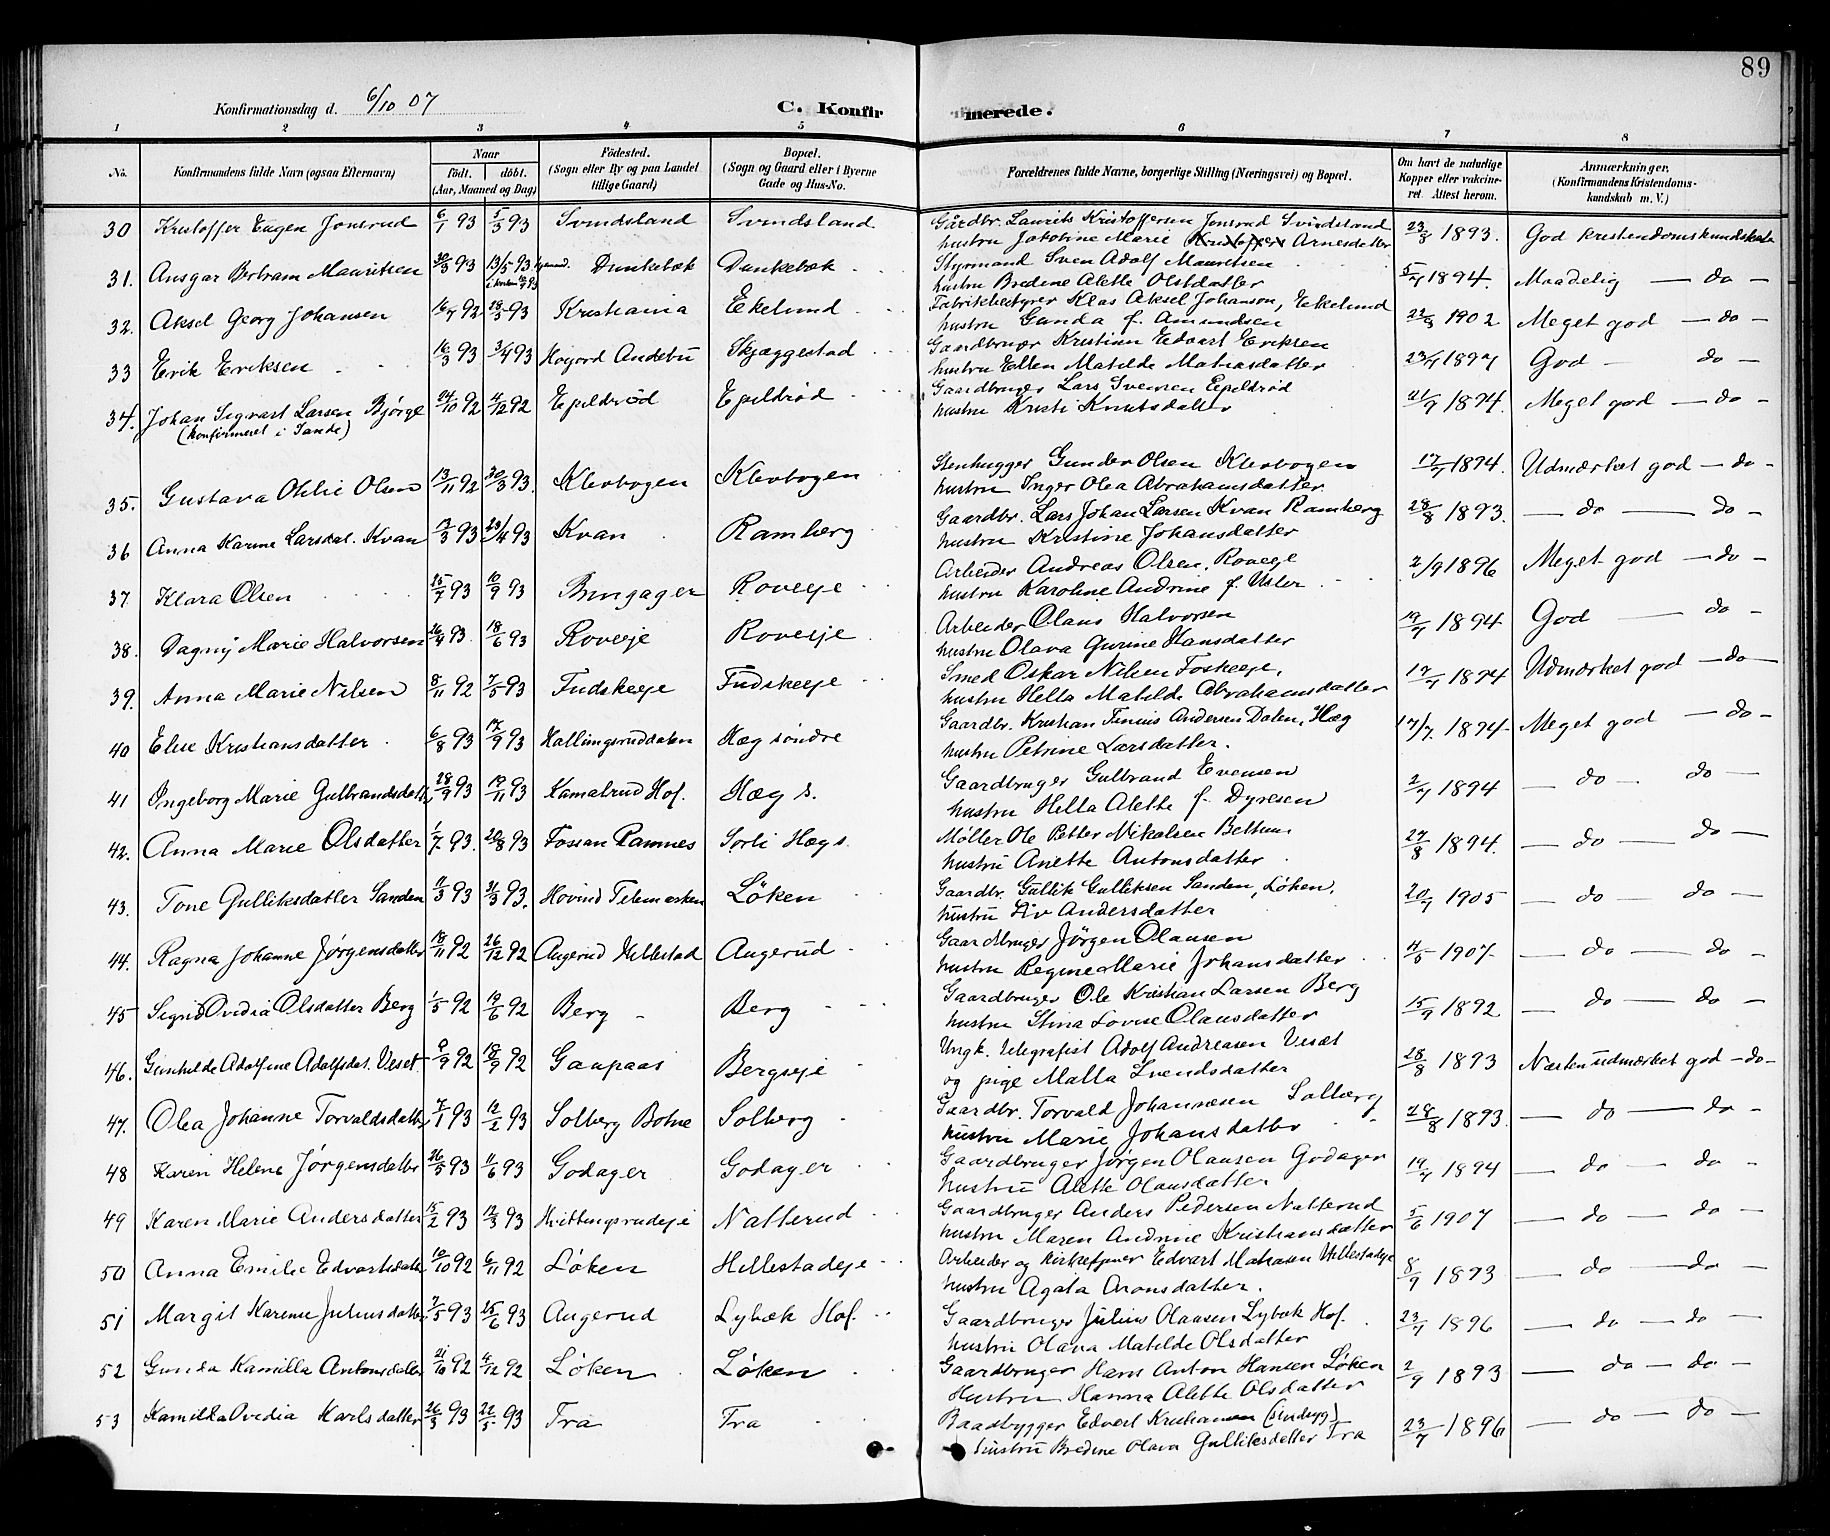 89
Konfirmationsdag d. 6/10 07
C. Konfirmerede.
1 2 3 4 5 6 7 8
No. Konfirmandens fulde Navn (ogsaa Efternavn) Naar födt. döbt. (Aar, Maaned og Dag) Födested. (Sogn eller By og paa Landet tillige Gaard) Bopæl. (Sogn og Gaard eller i Byerne Gade og Hus-No. Forældrenes fulde Navne, borgerlige Stilling (Næringsvei) og Bopæl. Om havt de naturlige Kopper eller vakcineret. Attest herom. Anmærkninger. (Konfirmandens Kristendomskundskab m. V.)
30 Kristoffer Eugen Jonsrud 6/1 93 5/3 93 Svindsland Svindsland Gårdbr. Laurits Kristoffersen Jonsrud Svindsland 23/8 1893. God Kristendomskundskab
hustru Jakobine Marie Arnesdatter
31. Ansgar Bertram Mauritsen 30/3 93 13/5 93 Dunkebæk Dunkebæk Styrmand Sven Adolf Mauritsen 5/7 1894. Maadelig — do —
hustru Bredene Alette Olsdatter
32. Aksel Georg Johansen 16/7 92 28/3 93 Kristiania Ekelund Fabrikbestyrer Klas Aksel Johanson, Ekelund 22/8 1902 Meget god — do —
hustru Gunda f. Amundsen
33 Erik Eriksen 16/3 93 3/4 93 Høgord Andebu Skjæggestad Gaardbruger Kristian Edvart Eriksen 23/7 1897 God — do —
hustru Ellen Matilde Matiasdatter
34. Johan Sigvart Larsen Bjørge 24/10 92 4/12 92 Epildrød Epildrød Gaardbruger Lars Svensen Epildrød 21/9 1894. Meget god — do —
(konfirmeret i Sande) hustru Kristi Knutsdatter
35. Gustava Otilie Olsen 13/11 92 30/3 93. Klevbogen Klevbogen Stenhugger Gunder Olsen Klevbogen 17/7 1894. Udmærket god — do —
hustru Inger Olea Abrahamsdatter
36 Anna Karine Larsdat. Kvan 12/3 93 23/4 93 Kvan Ramberg Gaardbr. Lars Johan Larsen Kvan Ramberg 28/8 1893. — do — do —
hustru Kristine Johansdatter
37. Klara Olsen 15/7 93 10/9 93 Bringager Roveeje Arbeider Andreas Olsen, Roveeje 2/9 1896 Meget god — do —
hustru Karoline Andrine f.
38. Dagny Marie Halvorsen 26/4 93 18/6 93 Roveeje Roveeje Arbeider Olaus Halvorsen 19/7 1894 God — do —
hustru Olava Gurine Hansdatter
39. Anna Marie Nilsen 8/11 92 7/5 93 Fudskeeje Fudskeeje Smed Oskar Nilsen Foskeeje, 17/7 1894 Udmærket god — do —
hustru Hella Matilde Abrahamsdatter
40 Elise Kristiansdatter 6/8 93 17/9 93 Hallingsruddalen Hæg söndre Gaardbr. Kristian Tinius Andersen Dalen, Hæg 17/7. 1894. Meget god — do —
hustru Petrine Larsdatter.
41 Ingeborg Marie Gulbrandsdatt. 28/9 93 19/11 93 Kamalrud Hof. Hæg s. Gaardbruger Gulbrand Evensen 2/7 1894 — do — do —
hustru Hella Alette f. Dyresen
42. Anna Marie Olsdatter 1/7 93. 20/8 93 Fossan Ramnes Sorli Hæg s. Møller Ole Petter Nikolsen Bettum 27/8 1894. — do — do —
hustru Anette Antonsdatter
43. Tone Gulliksdatter Sanden 11/3 93 31/3 93. Hovind Telemarken Löken Gaardbr. Gullik Gulliksen Sanden, Löken. 20/7 1905 — do — do —
hustru Liv Andersdatter
44. Ragna Johanne Jörgensdatter 18/11 92 26/12 92 Augerud Hillestad Augerud Gaardbruger Jörgen Olausen 4/5 1907. — do — do —
hustru Regine Marie Johansdatter
45 Sigrid Ovedia Olsdatter Berg 1/5 92 19/6 92 Berg Berg Gaardbruger Ole Kristian Larsen Berg 15/9 1892 — do — do —
hustru Stina Lovise Olausdatter
46. Gunhilde Adolfine Adolfsdat. Veset 9/9 92 18/9 92 Gaupaas Bergseje Ungk. telegrafist Adolf Andreasen Vesæt 28/8 1893 Næsten udmærket god — do —
og pige Malla Svendsdatter
47. Olea Johanne Torvaldsdatter 7/1 93 12/2 93 Solberg Botne Solberg Gaardbr. Torvald Johannesen Solberg 28/8 1893. — do — do —
hustru Marie Johansdatter
48 Karen Helene Jörgensdatter 26/5 93 11/6 93 Godager Godager Gaardbruger Jörgen Olausen Godager 19/7 1894 — do — do —
hustru Alette Olausdatter
49 Karen Marie Andersdatter 15/2 93 12/3 93 Hvittingsrudeje Natterud Gaardbruger Anders Pedersen Natterud 5/6 1907 — do — do —
hustru Maren Andrine Kristiansdatter
50 Anna Emilie Edvartsdatter 10/10 92 6/11 92 Löken Hillestadeje Arbeider og Edvart Matiasen Hillestadeje 8/9 1893 — do — do —
hustru Agata Aronsdatter.
51 Margit Karine Juliusdatter 7/5 93 25/6 93 Augerud Lybæk Hof. Gaardbruger Julius Olausen Lybæk Hof. 23/7 1896 — do — do —
hustru Olava Matilde Olsdatter
52 Gunda Kamilla Antonsdatter 21/10 92 4/12 92 Löken Löken Gaardbruger Hans Anton Hansen Löken 2/9 1893 — do — do —
Hustru Hanna Alette Olsdatter
53 Kamilla Ovedia Karlsdatter 26/3 93 22/5 93 Fra Fra Baadbygger Edvert Kristiansen 23/7 1896 — do — do —
hustru Bredine Olava Gulliksdatter Fra